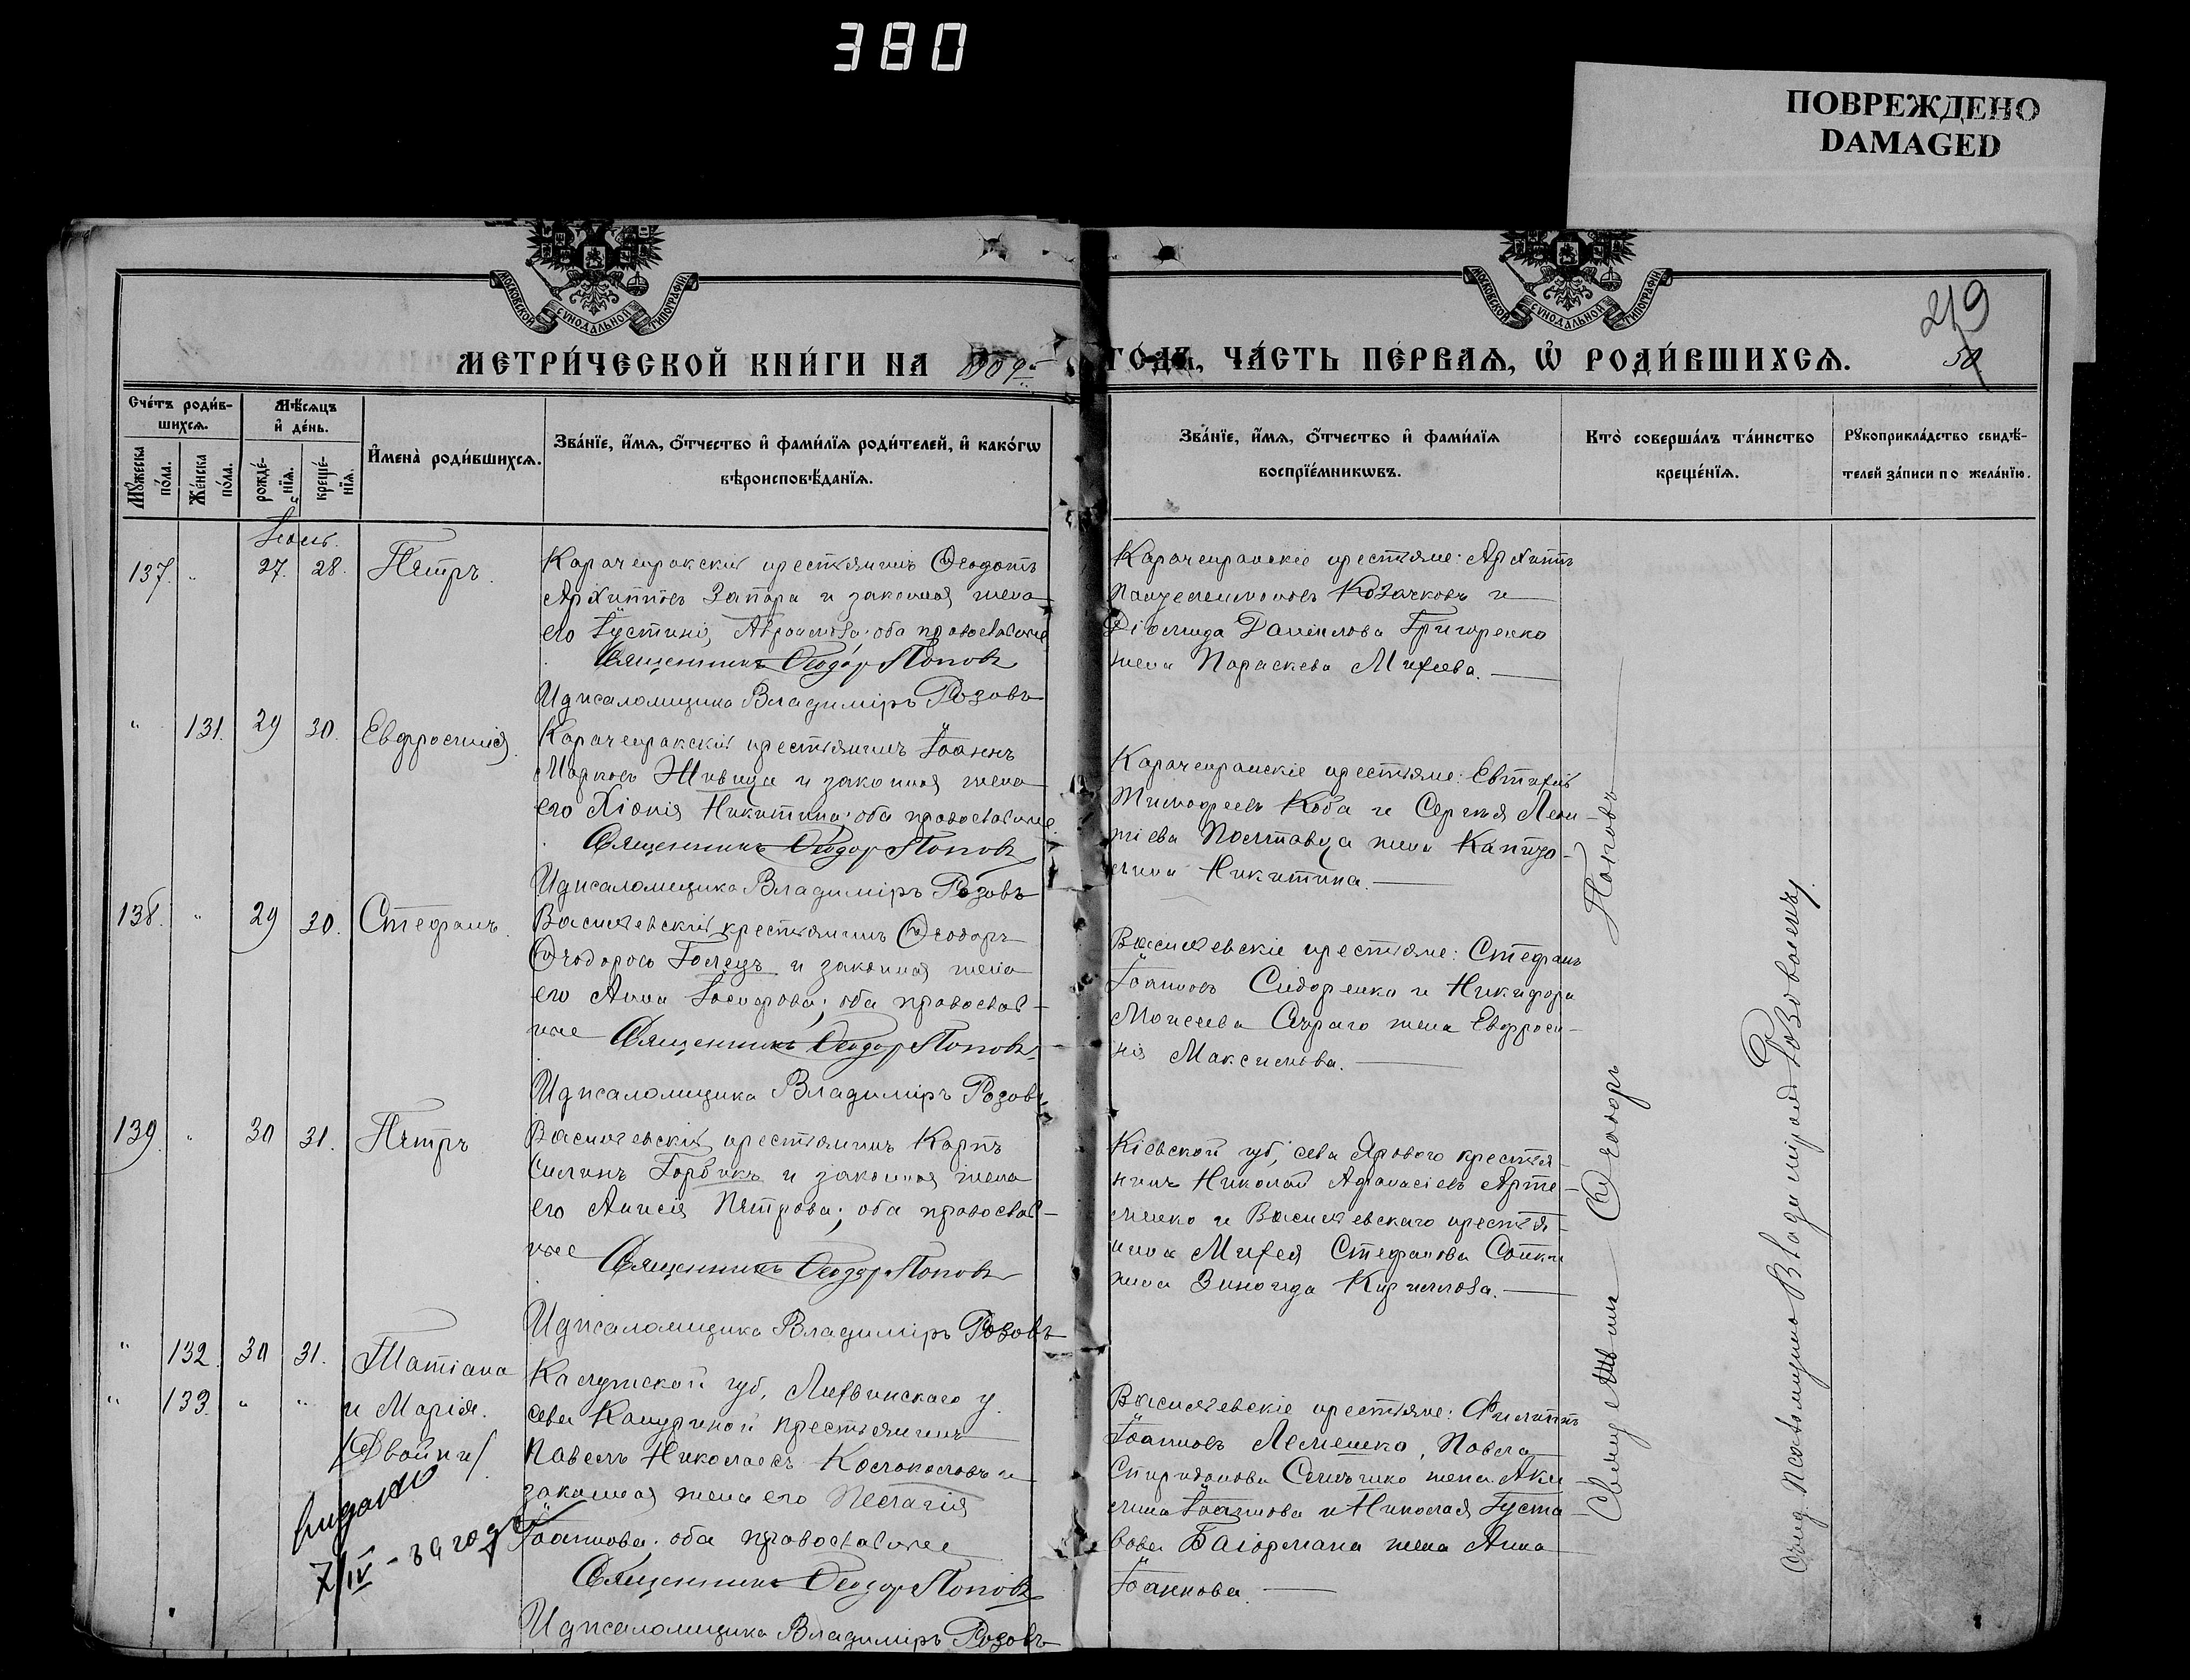 380
ПОВРЕЖДЕНО
DAMAGED
МОСКОВСКОЙ СУНОДАЛЬНОЙ ТИПОГРАФІИ
МОСКОВСКОЙ СУНОДАЛЬНОЙ ТИПОГРАФІИ
219
50
МЕТРИ́ЧЕСКОЙ КНИ́ГИ НА 1909
ГОДЪ, ЧА́СТЬ ПЕ́РВАѦ, Ѡ҆ РОДИ́ВШИХСѦ.
Сче́тъ роди́в-
шихсѧ.
Мꙋ́жеска
по́ла.
Же́нска
по́ла.
Мѣ́сѧцъ
и҆ де́нь.
рожде́-
нїѧ.
креще́-
нїѧ.
И҆мена̀ роди́вшихсѧ.
Зва́нїе, и҆́мѧ, ѻ҆́тчество и҆ фами́лїѧ роди́телей, и҆ како́гѡ
вѣроисповѣ́данїѧ.
Зва́нїе, и҆́мѧ, ѻ҆́тчество и҆ фами́лїѧ
воспрїе́мникѡвъ.
Кто̀ соверша́лъ та́инство
креще́нїѧ.
Рꙋкоприкла́дство свидѣ́-
телей за́писи по жела́нїю.
137. " 27. 28. Петръ.
Карачекракскій крестьянинъ Ѳеодотъ
Архиповъ Запара и законная жена
его Іустина Авраамова; оба православные
Священникъ Ѳеодоръ Поповъ
И д псаломщика Владиміръ Розовъ
Карачекракскіе крестьяне: Архипъ
Пантелеимоновъ Козачковъ и
Діомида Даніилова Григоренко
жена Параскева Михеева.
" 131. 29 30. Евфросинія.
Карачекракскій крестьянинъ Іоаннъ
Марковъ Живица и законная жена
его Хіонія Никитина; оба православные.
Священникъ Ѳеодоръ Поповъ
И д псаломщика Владиміръ Розовъ
Карачекракскіе крестьяне: Евтихій
Тимофеевъ Коба и Сергія Леон-
тіева Полтавца жена Капито-
лина Никитина.
138. " 29 30. Стефанъ.
Васильевскій крестьянинъ Ѳеодоръ
Ѳеодоровъ Голецъ и законная жена
его Анна Іосифова; оба православ-
ные Священникъ Ѳеодоръ Поповъ
И д псаломщика Владиміръ Розовъ
Васильевскіе крестьяне: Стефанъ
Іоанновъ Сидоренко и Никифора
Моисеева Сѣраго жена Евфроси-
нія Максимова.
139. " 30 31. Петръ
Васильевскій крестьянинъ Карпъ
Силинъ Горбикъ и законная жена
его Анисія Петрова; оба православ-
ные Священникъ Ѳеодоръ Поповъ
И д псаломщика Владиміръ Розовъ
Кіевской губ, села Ярового крестья-
нинъ Николай Афанасіевъ Арте-
менко и Васильевскаго крестья-
нина Михея Стефанова Сопки
жена Зинаида Кириллова.
" 132. 30 31. Татіана
" 133. " " и Марія.
/Двойни/
Калужской губ, Лихвинскаго у.
села Кашуриной крестьянинъ
Павелъ Николаевъ Колоколовъ и
законная жена его Пелагія
Іоаннова; оба православные
Священникъ Ѳеодоръ Поповъ
И д псаломщика Владиміръ Розовъ
Васильевскіе крестьяне: Филиппъ
Іоанновъ Лемешко, Павла
Спиридонова жена Аки-
лина Іоаннова и Николая Густа-
вова жена Анна
Іоаннова.
7/IV
Священникъ Ѳеодоръ Поповъ